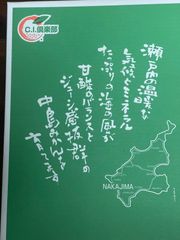 C.I.倶楽部
瀬戸内の温暖な
気候とミネラル
たっぷりの海の風が
甘酸のバランスと
ジューシー感抜群の
中島みかんを
育てています
NAKAJIMA